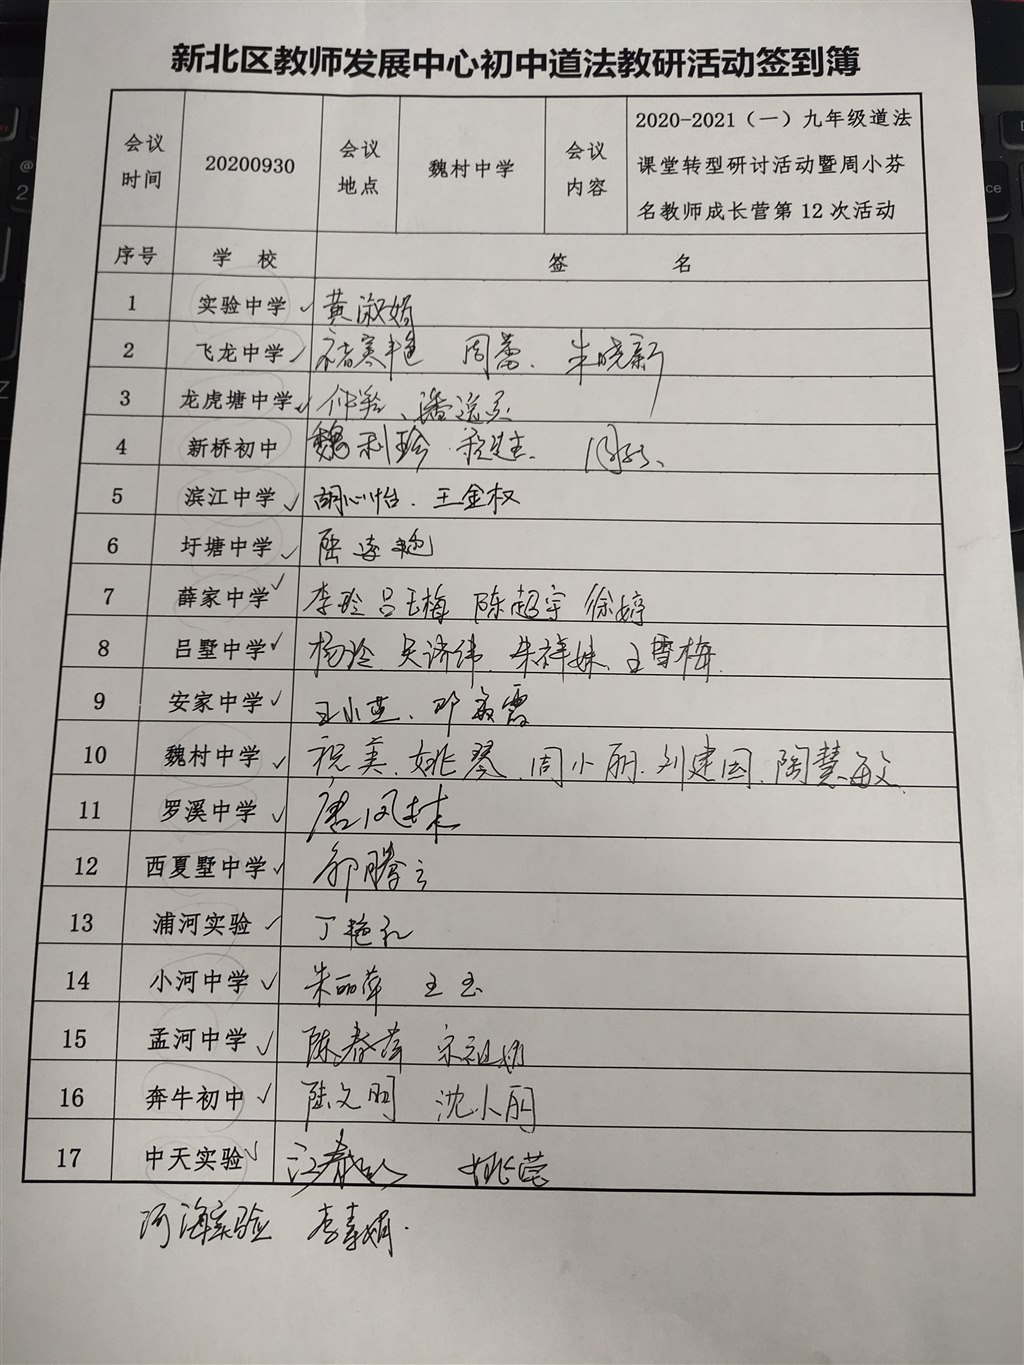 新北区教师发展中心初中道法教研活动签到簿
会议时间 20200930 会议地点 魏村中学 会议内容 2020-2021（一）九年级道法课堂转型研讨活动暨周小芬名教师成长营第12次活动
序号 学 校 签 名
1 实验中学 ✓ 黄淑娟
2 飞龙中学 ✓ 褚寒艳 周蕾、朱晓新
3 龙虎塘中学 ✓
4 新桥初中 魏利珍
5 滨江中学 ✓ 胡心怡、王金权
6 圩塘中学 ✓
7 薛家中学 ✓ 李玲 吕玉梅 陈超宇 徐婷
8 吕墅中学 ✓ 杨玲、吴济伟、朱祥妹、王雪梅
9 安家中学 ✓ 王小燕、邓
10 魏村中学 ✓ 祝美、姚琴、周小丽、刘建国、陶慧敏
11 罗溪中学 ✓
12 西夏墅中学 ✓ 郭腾云
13 浦河实验 ✓ 丁艳礼
14 小河中学 ✓ 朱丽萍 王玉
15 孟河中学 ✓ 陈春萍
16 奔牛初中 ✓ 陆文明 沈小丽
17 中天实验 ✓ 姚莹
河海实验 李春娟